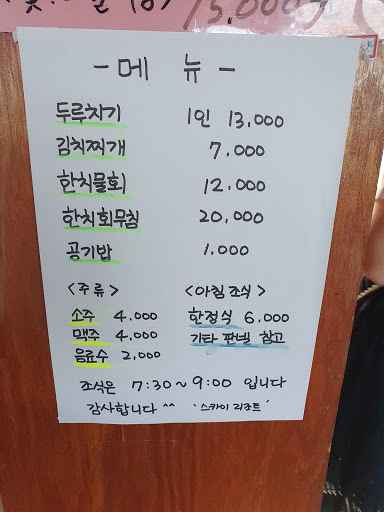 15.000
- 메 뉴 -
두루치기 1인 13,000
김치찌개 7,000
한치물회 12.000
한치회무침 20,000
공기밥 1.000
<주류> <아침 조식>
소주 4.000 한정식 6.000
맥주 4,000 기타 판넬 참고
음료수 2,000
조식은 7:30~9:00 입니다
감사합니다 ^^ '스카이 리조트'